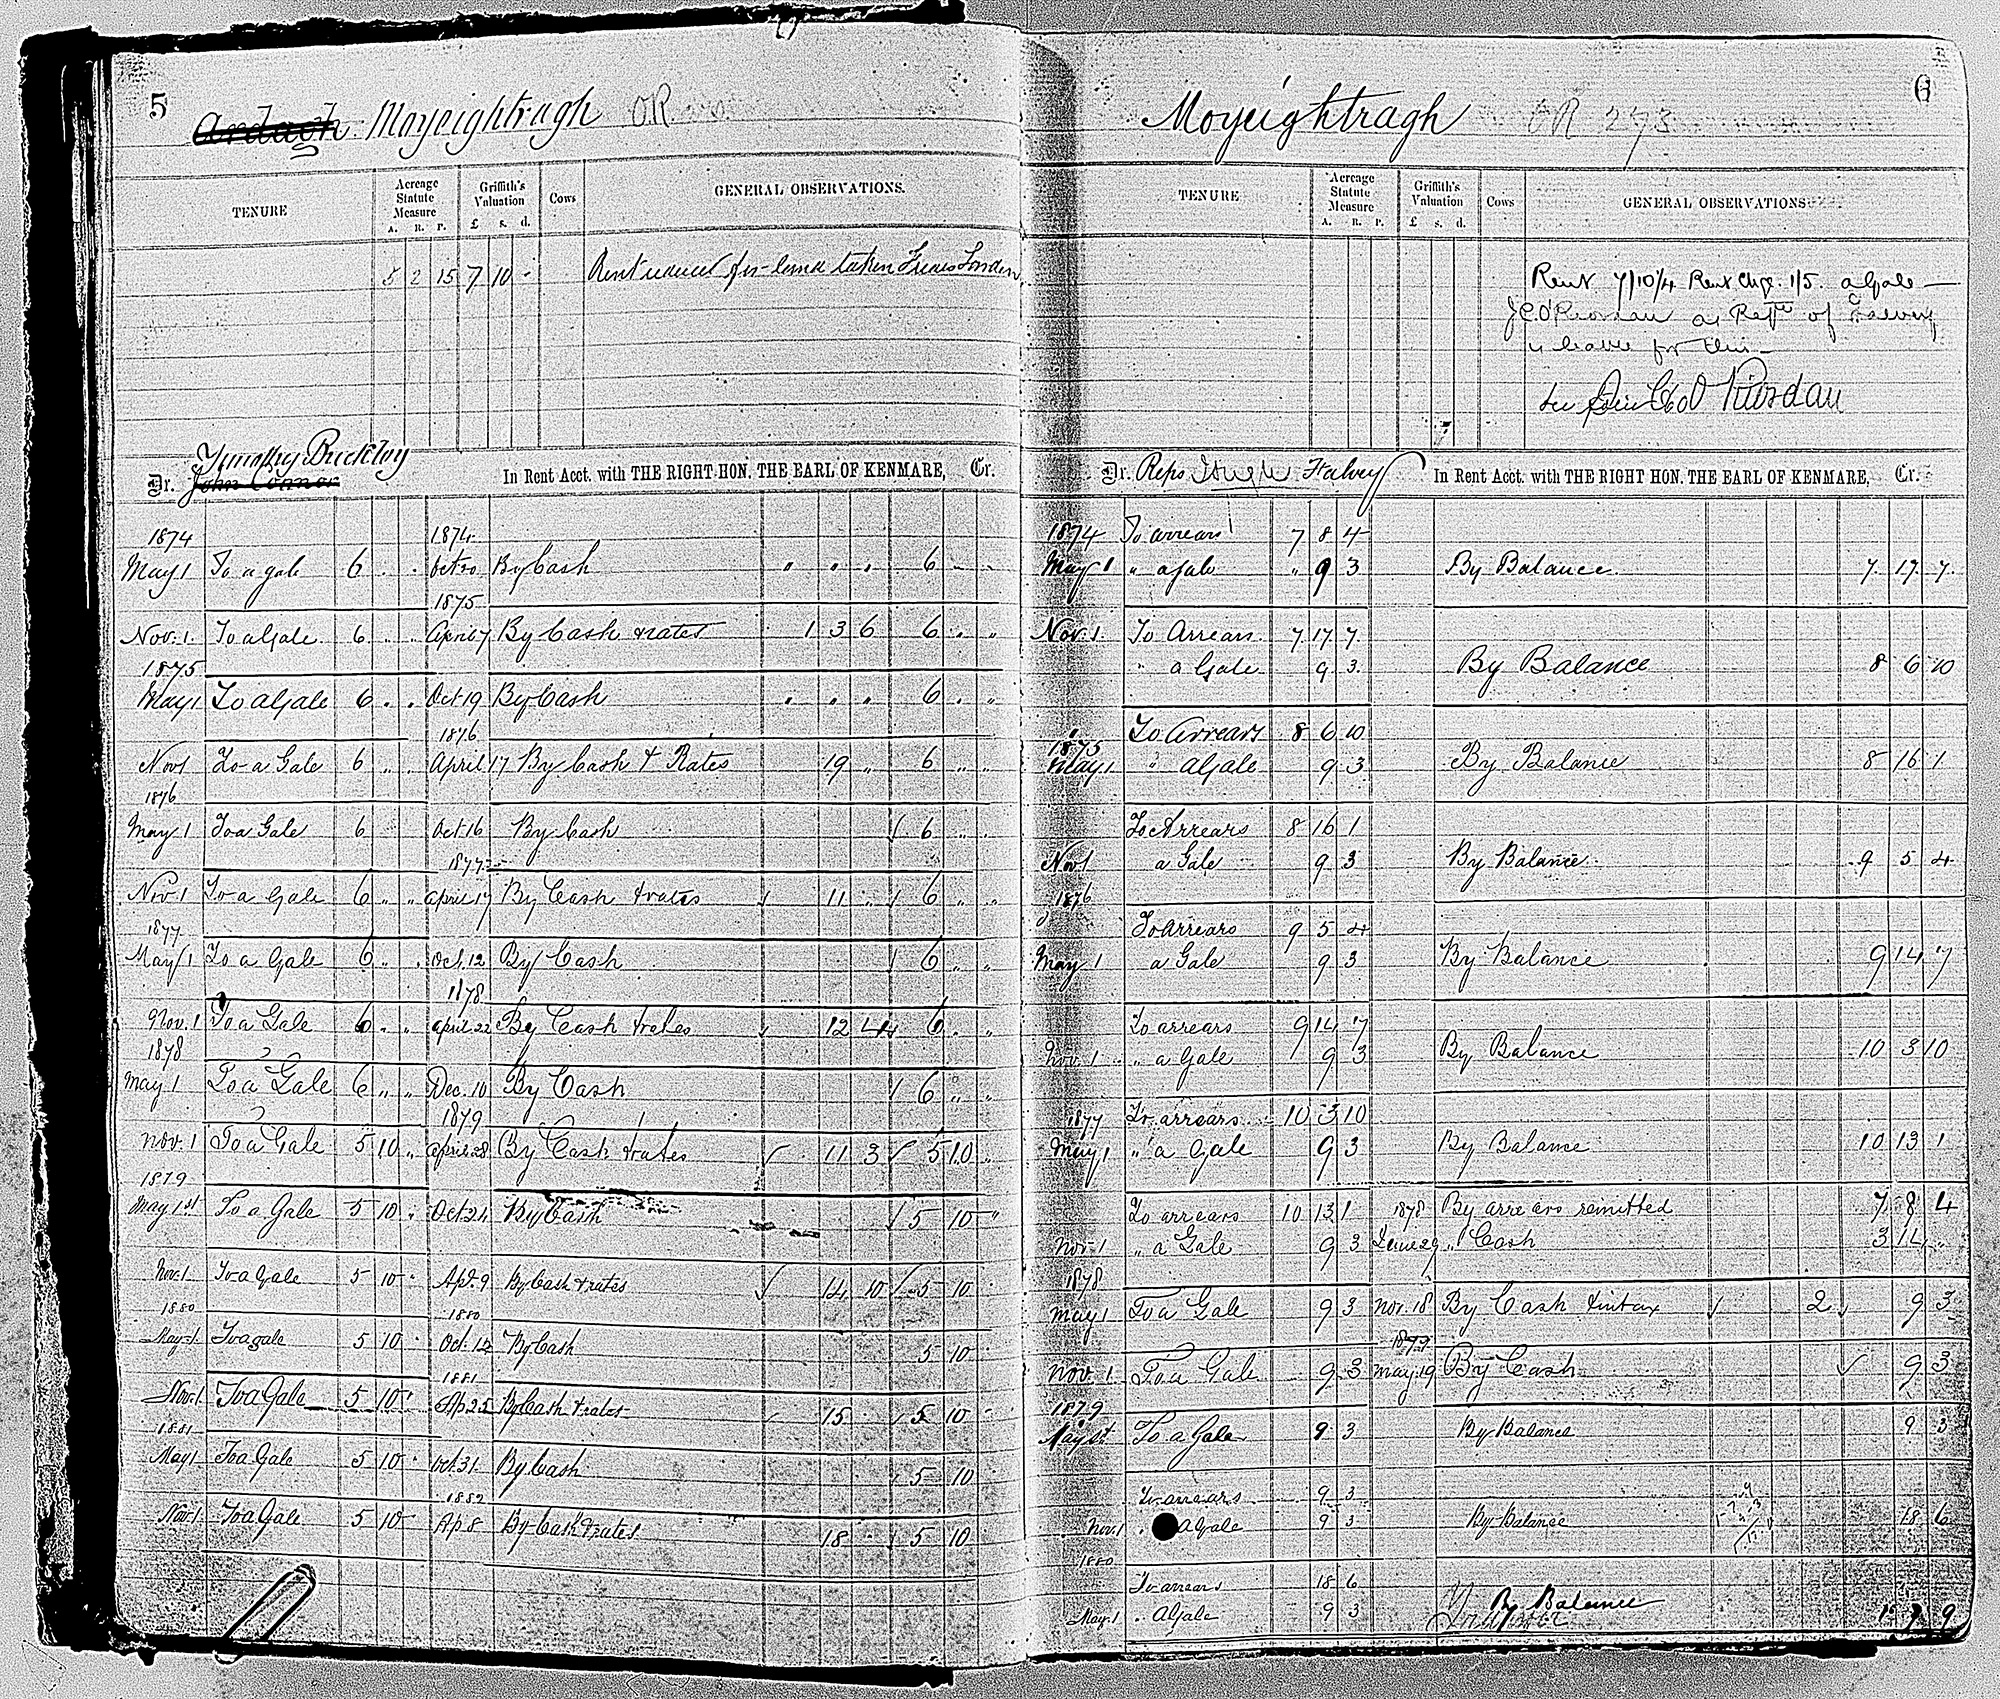 5
Ardagh Moyeightragh OR
TENURE
Acreage Statute Measure
A. R. P.
Griffith's Valuation
£ s. d.
Cows
GENERAL OBSERVATIONS.
8 2 15 7 10 -
Rent reduced for land taken
Timothy Buckley
Dr. John Connor In Rent Acct. with THE RIGHT HON. THE EARL OF KENMARE, Cr.
1874 1874
May 1 To a gale 6 . . Oct 20 By Cash " . . 6 . .
1875
Nov. 1. To a Gale 6 . . April 7 By Cash & rates 1 3 6 6 . "
1875
May 1 To a Gale 6 . . Oct 19 By Cash . . . 6 . "
1876
Nov 1 To a Gale 6 " . April 17 By Cash & Rates 19 " 6 " "
1876
May 1 To a Gale 6 Oct 16 By Cash √ 6 " .
1877
Nov. 1 To a Gale 6 " " April 17 By Cash & rates √ 11 " √ 6 " "
1877
May 1 To a Gale 6 " . Oct. 12 By Cash √ 6 " "
1878
Nov. 1 To a Gale 6 . " April 22 By Cash & rates √ 12 4 √ 6 . "
1878
May 1 To a Gale 6 " " Dec. 10 By Cash √ 6 " "
1879
Nov. 1 To a Gale 5 10 " April 28 By Cash & rates √ . 11 3 √ 5 10 "
1879
May 1st To a Gale 5 10 " Oct 24 By Cash √ 5 10 "
Nov. 1 To a Gale 5 10 - Apl. 9 By Cash & rates √ 14 10 √ 5 10
1880 1880
May 1 To a gale 5 10 . Oct. 12 By Cash 5 10
1881
Nov. 1 To a Gale 5 10 . Ap 25 By Cash & rates √ 15 . √ 5 10
1881
May 1 To a Gale 5 10 . Oct. 31 By Cash √ 5 10
1882
Nov. 1 To a Gale 5 10 - Ap 8 By Cash & rates 18 . √ 5 10
6
Moyeightragh OR 273
TENURE
Acreage Statute Measure
A. R. P.
Griffith's Valuation
£ s. d.
Cows
GENERAL OBSERVATIONS
Rent 7/10¼ Rent Chge. 1/5. a Gale —
J C O'Riordan as Rept of Falvey
is liable for this —
See O'Riordan
Dr. Reps Hugh Falvey In Rent Acct. with THE RIGHT HON. THE EARL OF KENMARE, Cr.
1874 To arrears 7 8 4
May 1 " a Gale " 9 3 By Balance 7 17 7
Nov. 1 To Arrears 7 17 7
" a Gale 9 3 By Balance 8 6 10
To Arrears 8 6 10
1875
May 1 " a Gale 9 3 By Balance 8 16 1
To Arrears 8 16 1
Nov 1 a Gale 9 3 By Balance 9 5 4
1876
To Arrears 9 5 4
May 1 a Gale 9 3 By Balance 9 14 7
To arrears 9 14 7
Nov. 1 " a Gale 9 3 By Balance 10 3 10
1877 To arrears 10 3 10
May 1 " a Gale 9 3 By Balance 10 13 1
To arrears 10 13 1 1878 By arrears remitted 7 8 4
Nov. 1 " a Gale 9 3 June 29 " Cash 3 14 "
1878
May 1 To a Gale 9 3 Nov. 18 By Cash & intax √ 2 √ 9 3
1879
Nov. 1 To a Gale 9 3 May 19 By Cash √ 9 3
1879
May 1st To a Gale 9 3 By Balance 9 3
To arrears 9 3
Nov. 1 . a Gale 9 3 By Balance 18 6
1880
To arrears 18 6
May. 1 . a Gale 9 3 By Balance 1 7 9